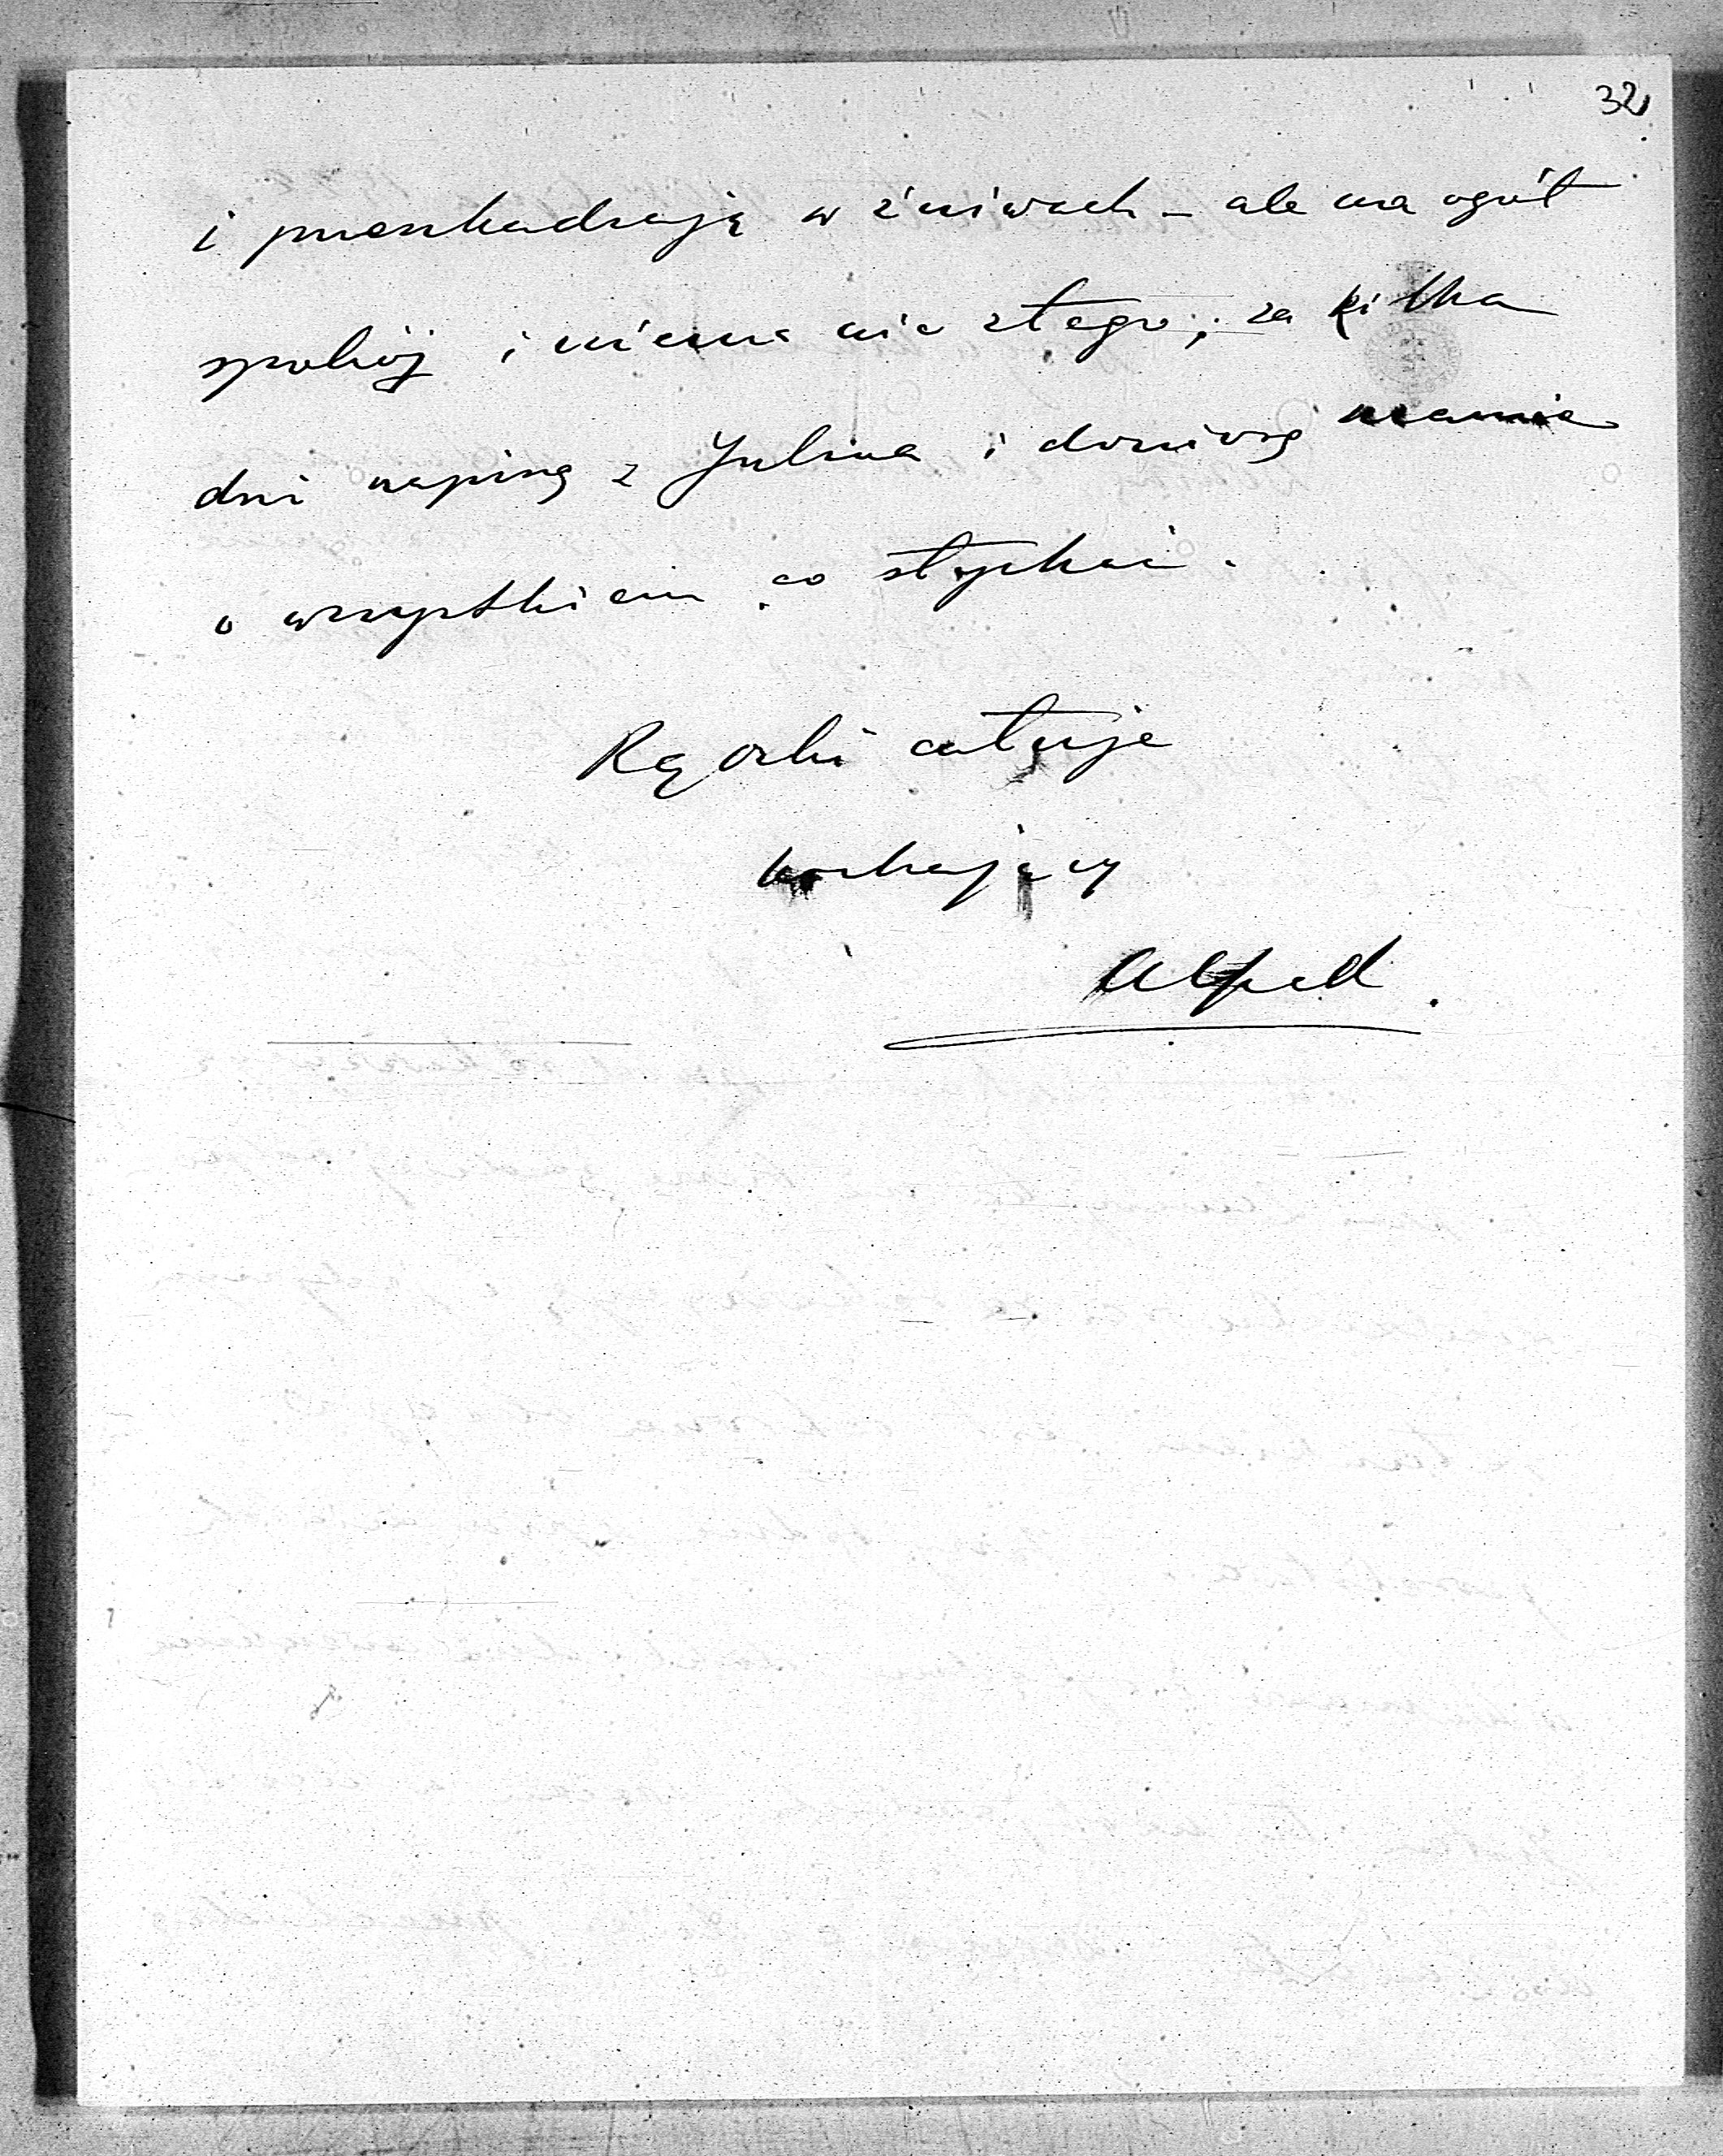 32
i przeszkadzają w żniwach – ale na ogół
spokój i niema nic złego; za kilka
dni napiszę z Julina i doniosę mamie
o wszystkiem co słychać.
Rączki całuje
kochający
Alfred.